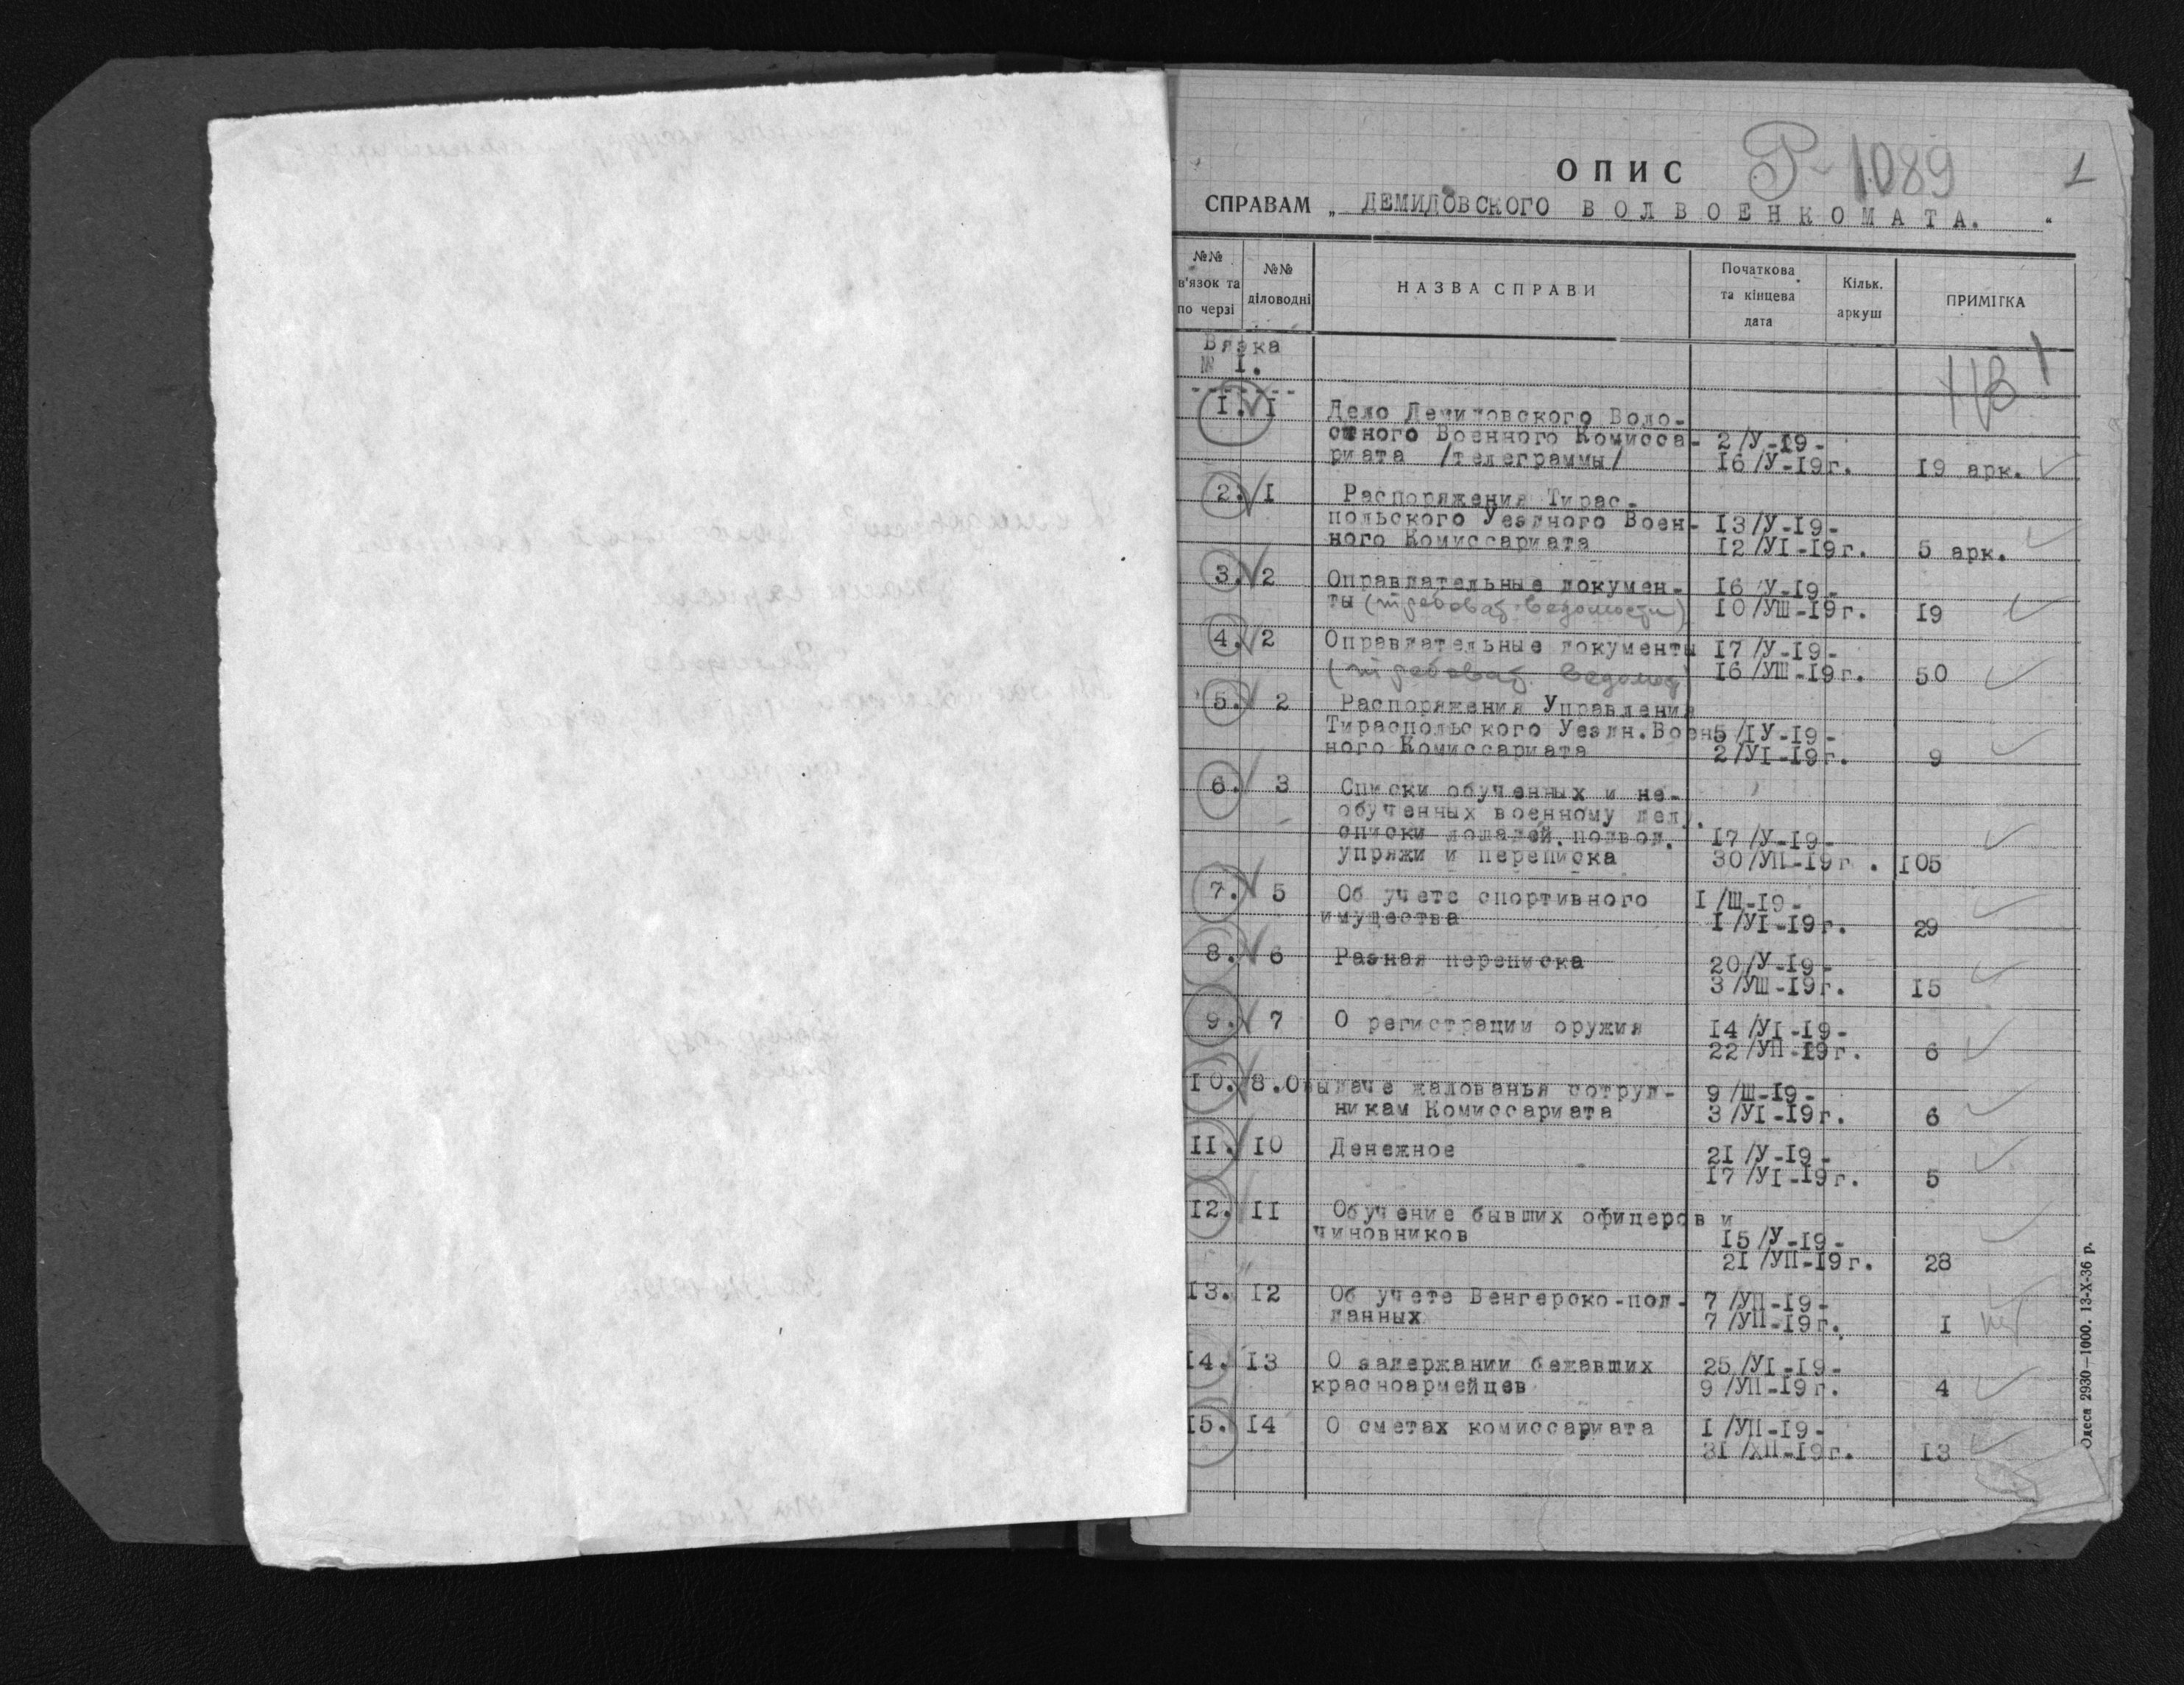 ОПИС
Р-1089
1
СПРАВАМ „ ДЕМИДОВСКОГО ВОЛВОЕНКОМАТА. “
№№ в'язок та по черзі
№№ діловодні
НАЗВА СПРАВИ
Початкова та кінцева дата
Кільк. аркуш
ПРИМІТКА
Вязка
№ I.
I. I Дело Демидовского Воло-
стного Военного Комисса- 2/У-19-
риата /телеграммы/ 16/У-19г. 19 арк.
2. I Распоряжения Тирас-
польского Уездного Воен- 13/У-19-
ного Комиссариата 12/УI-19г. 5 арк.
3. 2 Оправдательные докумен- 16/У-19-
ты (требоват. ведомости) 10/УШ-19г. 19
4. 2 Оправдательные документы 17/У-19-
(требоват. ведомос) 16/УШ-19г. 50
5. 2 Распоряжения Управления
Тираспольского Уездн.Воен- 5/IУ-19-
ного Комиссариата 2/УI-19г. 9
6. 3 Списки обученных и не-
обученных военному делу.
списки лошадей, подвод, 17/У-19-
упряжи и переписка 30/УП-19г. 105
7. 5 Об учете спортивного I/Ш-19-
имущества I/УI-19г. 29
8. 6 Разная переписка 20/У-19-
3/УШ-19г. 15
9. 7 О регистрации оружия 14/УI-19-
22/УП-19г. 6
10. 8. О выдаче жалованья сотруд- 9/Ш-19-
никам Комиссариата 3/УI-19г. 6
II. 10 Денежное 21/У-19-
17/УI-19г. 5
12. II Обучение бывших офицеров и
чиновников 15/У-19-
21/УП-19г. 28
13. 12 Об учете Венгерско-под- 7/УП-19-
данных 7/УП-19г. I
14. 13 О задержании бежавших 25/УI-19-
красноармейцев 9/УП-19г. 4
15. 14 О сметах комиссариата I/УП-19-
31/ХП-19г. 13
Одеса 2930—1000. 13-X-36 р.